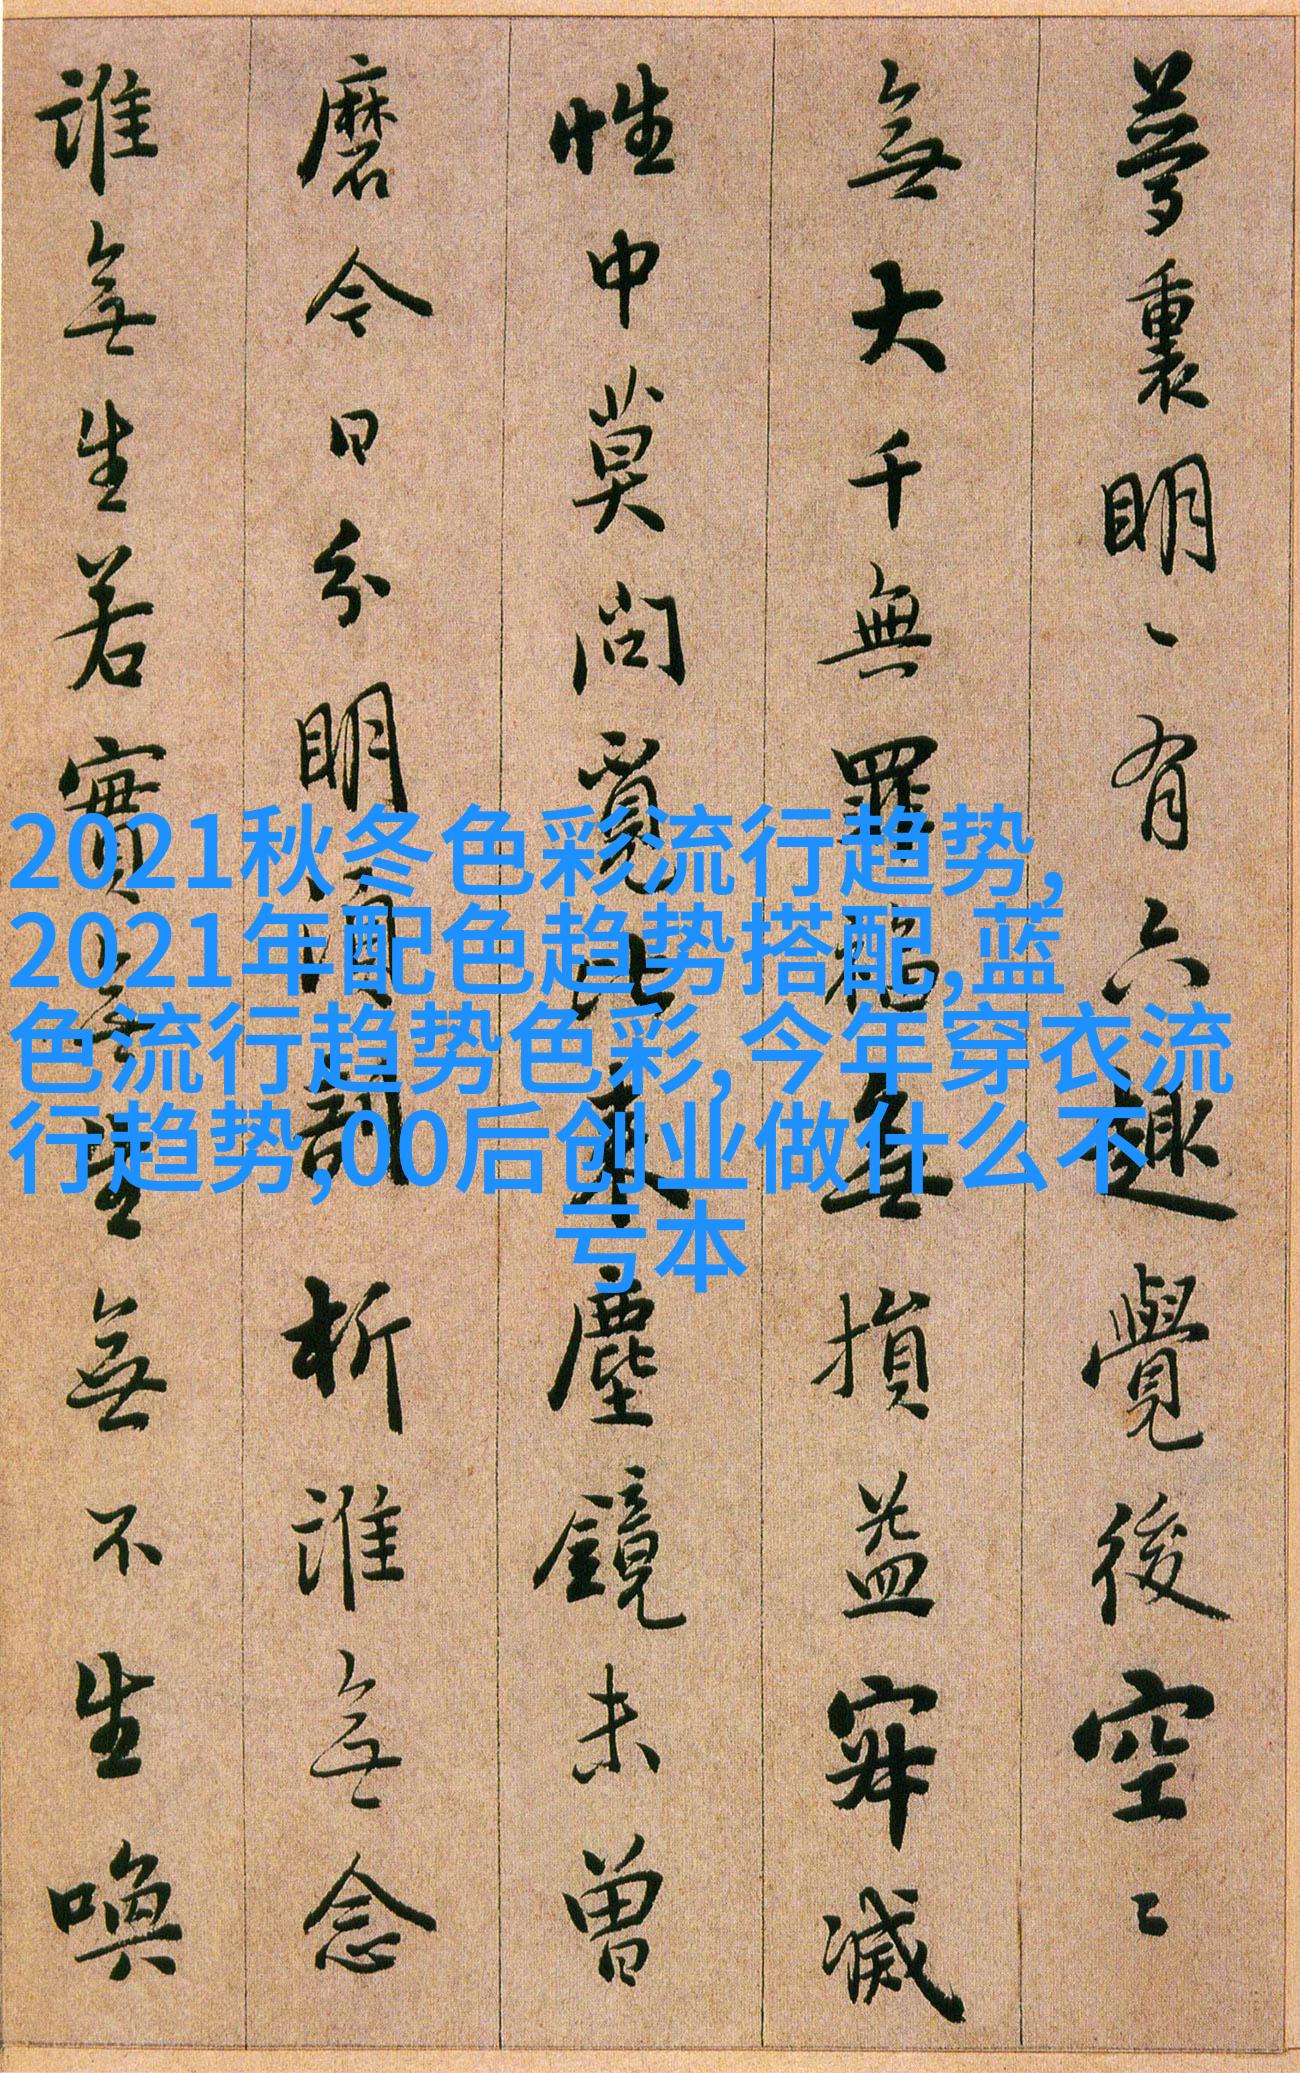 夢裏明〻有六趣覺後空〻
無大千無罪福無損益寂滅
性中莫問覓比來塵鏡未曾
磨今日分明須剖析誰無念
誰無生若實無生無不生喚
2021秋冬色彩流行趋势,
2021年配色趋势搭配,蓝
色流行趋势色彩, 今年穿衣流
行趋势,00后创业做什么不
亏本